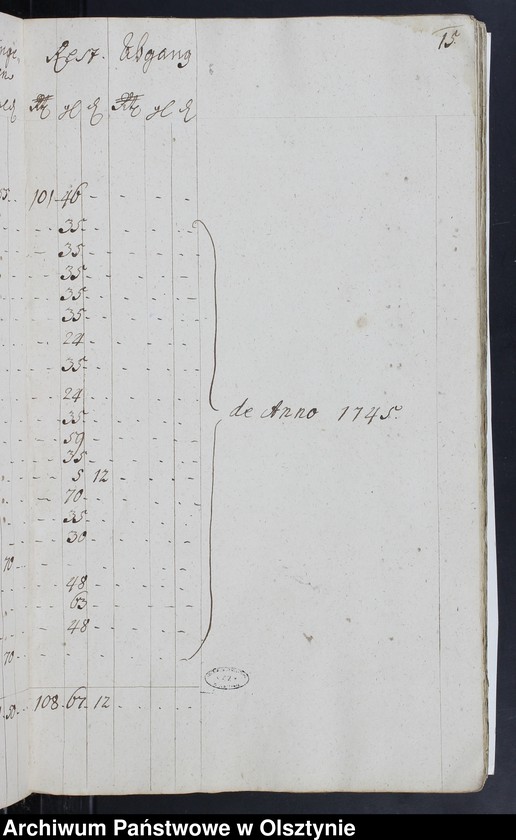 15.
Rest. Abgang
Rth gl ₰ Rth gl ₰
101 46 - - - -
35
35
35
35
35
24
35
24
35
59
35
5 12
70
35
30
70
48
63
48
70
de Anno 1745.
108 67 12
Archiwum Państwowe w Olsztynie